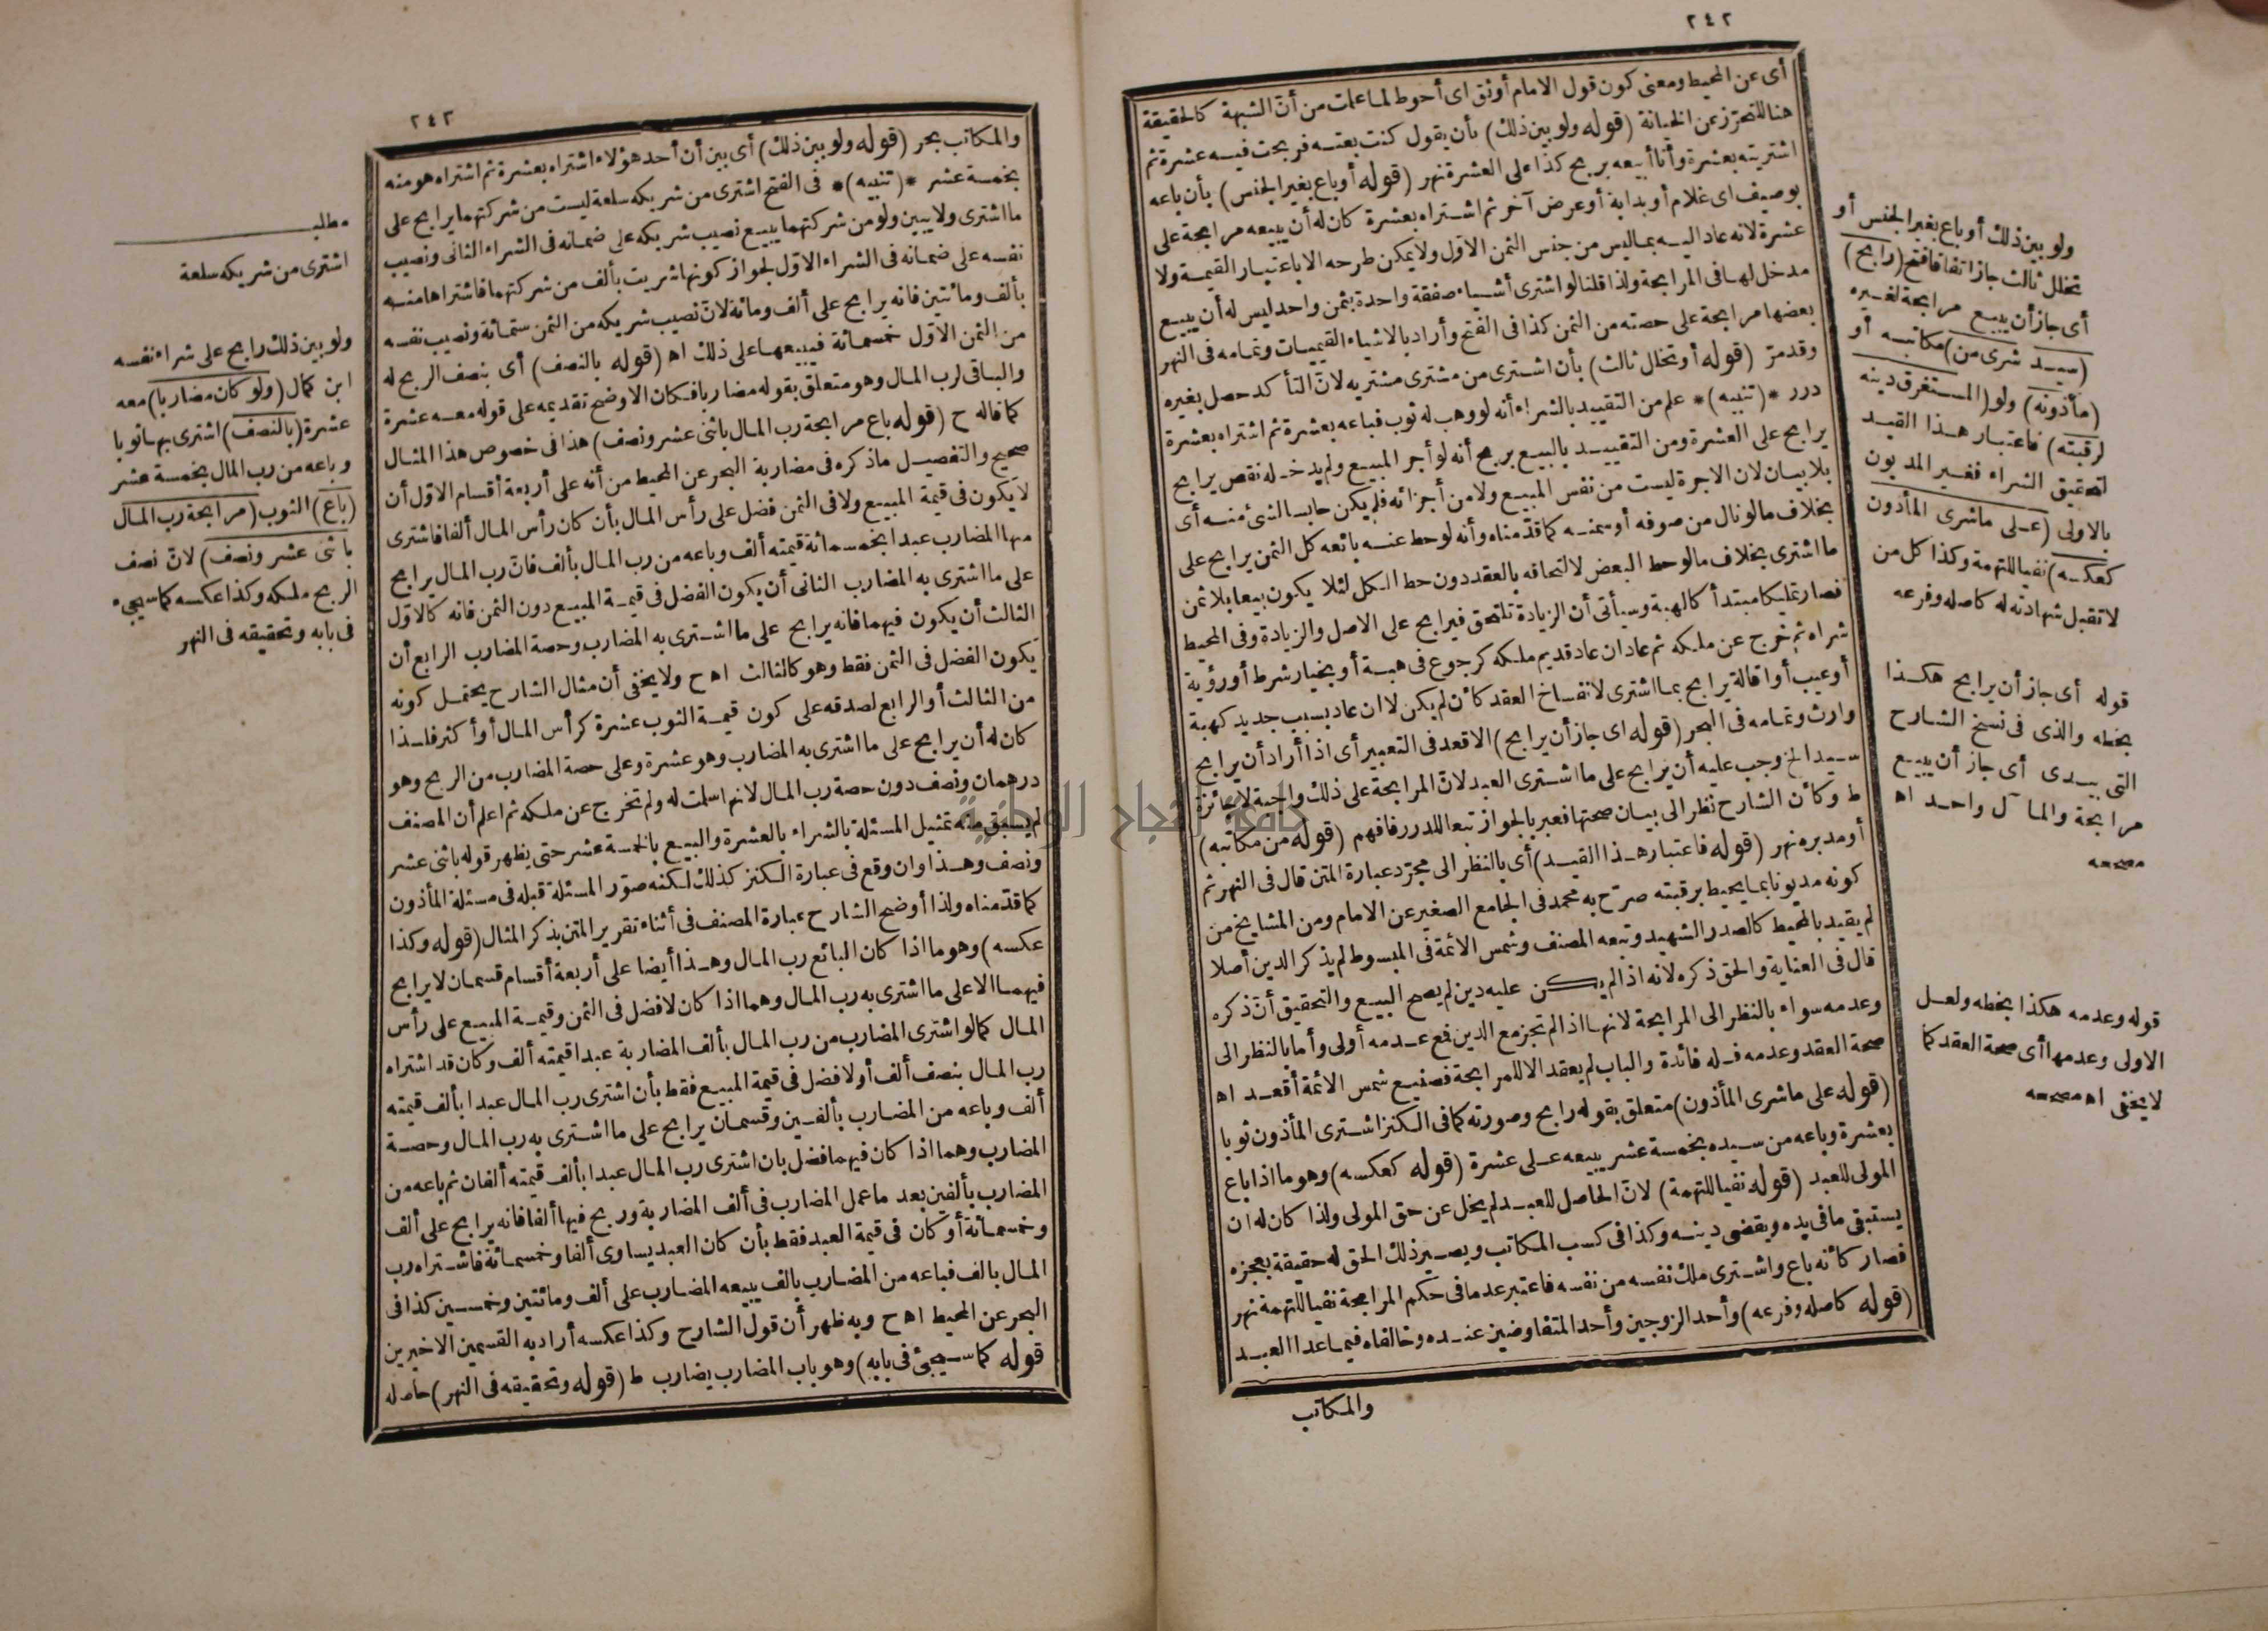 ٢٤٢
أى عن المحيط ومعنى كون قول الامام أوثق اى أحوط لما علمت من أن الشبهة كالحقيقة
هنا للتحرّز عن الخيانة (قوله ولو بين ذلك) بأن يقول كنت بعته فربحت فيه عشرة ثم
اشتريته بعشرة وأنا أبيعه بربح كذا على العشرة نهر (قوله أو باع بغير الجنس) بأن باعه
بوصيف اى غلام أو بداية أو عرض آخر ثم اشتراه بعشرة كان له أن يبيعه مرابحة على
عشرة لانه عاد اليه بما ليس من جنس الثمن الاوّل ولا يمكن طرحه الا باعتبار القيمة ولا
مدخل لها فى المرابحة ولذا قلنا لو اشترى أشياء صفقة واحدة بثمن واحد ليس له أن يبيع
بعضها مرابحة على حصته من الثمن كذا فى الفتح وأراد بالاشياء القيميات وتمامه فى النهر
وقدمرّ (قوله أو تخلل ثالث) بأن اشترى من مشترى مشتريه لانّ التأكد حصل بغيره
درر *(تنبيه)* علم من التقييد بالشراء أنه لو وهب له ثوب فباعه بعشرة ثم اشتراه بعشرة
يرابح على العشرة ومن التقييد بالبيع بربح أنه لو أجر المبيع ولم يدخله نقص يرابح
بلا بيان لان الاجرة ليست من نفس المبيع ولا من أجزائه فلم يكن حابسا لشئ منه أى
بخلاف ما لو نال من صوفه أو سمنه كما قدّمناه وأنه لو حط عنه بائعه كل الثمن يرابح على
ما اشترى بخلاف ما لو حط البعض لالتحاقه بالعقد دون حط الكل لئلا يكون بيعا بلا ثمن
فصار تمليكا مبتدأ كالهبة وسيأتى أن الزيادة تلتحق فيرابح على الاصل والزيادة وفى المحيط
شراه ثم خرج عن ملكه ثم عاد ان عاد قديم ملكه كرجوع فى هبة أو بخيار شرط أو رؤية
أو عيب أو اقالة يرابح بما اشترى لانفساخ العقد كأن لم يكن لا ان عاد بسبب جديد كهبة
وارث وتمامه فى البحر (قوله اى جاز أن يرابح) الاقعد فى التعبير أى اذا أراد أن يرابح
سيد الخ وجب عليه أن يرابح على ما اشترى العبد لانّ المرابحة على ذلك واجبة لا جائزة
ط وكأن الشارح نظر الى بيان صحتها فعبر بالجواز تبعا للدرر فافهم (قوله من مكاتبه)
أو مدبره نهر (قوله فاعتبار هذا القيد) أى بالنظر الى مجرّد عبارة المتن قال فى النهر ثم
كونه مديونا بما يحيط برقبته صرّح به محمد فى الجامع الصغير عن الامام ومن المشايخ من
لم يقيد بالمحيط كالصدر الشهيد وتبعه المصنف وشمس الائمة فى المبسوط لم يذكر الدين أصلا
قال فى العناية والحق ذكره لانه اذا لم يكن عليه دين لم يصح البيع والتحقيق أنّ ذكره
وعدمه سواء بالنظر الى المرابحة لانها اذا لم تجز مع الدين فمع عدمه أولى وأما بالنظر الى
صحة العقد وعدمه فله فائدة والباب لم يعقد الا للمرابحة فصنيع شمس الائمة أقعد اه
(قوله على ما شرى المأذون) متعلق بقوله رابح وصورته كما فى الكنز اشترى المأذون ثوبا
بعشرة وباعه من سيده بخمسة عشر يبيعه على عشرة (قوله كعكسه) وهو ما اذا باع
المولى للعبد (قوله نفيا للتهمة) لانّ الحاصل للعبد لم يخل عن حق المولى ولذا كان له ان
يستبقى ما فى يده ويقضى دينه وكذا فى كسب المكاتب ويصير ذلك الحق له حقيقة بعجزه
فصار كأنه باع واشترى ملك نفسه من نفسه فاعتبر عدما فى حكم المرابحة نفيا للتهمة نهر
(قوله كاصله وفرعه) وأحد الزوجين وأحد المتفاوضين عنده وخالفاه فيما عدا العبد
والمكاتب
ولو بين ذلك أو باع بغير الجنس أو
تخلل ثالث جاز اتفاقا فتح (رابح)
أى جاز أن يبيع مرابحة لغيره
(سيد شرى من) مكاتبه أو
(مأذونه) ولو (المستغرق دينه
لرقبته) فاعتبار هذا القيد
لتحقيق الشراء فغير المديون
بالاولى (على ما شرى المأذون
كعكسه) نفيا للتهمة وكذا كل من
لا تقبل شهادته له كاصله وفرعه
قوله أى جاز أن يرابح هكذا
بخطه والذى فى نسخ الشارح
التى بيدى أى جاز أن يبيع
مرابحة والمآل واحد اه
مصححه
قوله وعدمه هكذا بخطه ولعل
الاولى وعدمها أى صحة العقد كما
لا يخفى اه مصححه
٢٤٣
والمكاتب بحر (قوله ولو بين ذلك) أى بين أن أحد هؤلاء اشتراه بعشرة ثم اشتراه هو منه
بخمسة عشر *(تنبيه)* فى الفتح اشترى من شريكه سلعة ليست من شركتهما يرابح على
ما اشترى ولا يبين ولو من شركتهما يبيع نصيب شريكه على ضمانه فى الشراء الثانى ونصيب
نفسه على ضمانه فى الشراء الاوّل لجواز كونها اشتريت بألف من شركتهما فاشتراها منه
بألف ومائتين فانه يرابح على ألف ومائة لانّ نصيب شريكه من الثمن ستمائة ونصيب نفسه
من الثمن الاوّل خمسمائة فيبيعها على ذلك اه (قوله بالنصف) أى بنصف الربح له
والباقى لرب المال وهو متعلق بقوله مضاربا فكان الاوضح تقديمه على قوله معه عشرة
كما قاله ح (قوله باع مرابحة رب المال باثنى عشر ونصف) هذا فى خصوص هذا المثال
صحيح والتفصيل ما ذكره فى مضاربة البحر عن المحيط من أنه على أربعة أقسام الاوّل أن
لا يكون فى قيمة المبيع ولا فى الثمن فضل على رأس المال بأن كان رأس المال ألفا فاشترى
منها المضارب عبدا بخمسمائة قيمته ألف وباعه من رب المال بألف فانّ رب المال يرابح
على ما اشترى به المضارب الثانى أن يكون الفضل فى قيمة المبيع دون الثمن فانه كالاوّل
الثالث أن يكون فيهما فانه يرابح على ما اشترى به المضارب وحصة المضارب الرابع أن
يكون الفضل فى الثمن فقط وهو كالثالث اه ح ولا يخفى أن مثال الشارح يحتمل كونه
من الثالث أو الرابع لصدقه على كون قيمة الثوب عشرة كرأس المال أو أكثر فلذا
كان له أن يرابح على ما اشترى به المضارب وهو عشرة وعلى حصة المضارب من الربح وهو
درهمان ونصف دون حصة رب المال لانها سلمت له ولم تخرج عن ملكه ثم اعلم أن المصنف
لم يسبق منه تمثيل المسئلة بالشراء بالعشرة والبيع بالخمسة عشر حتى يظهر قوله باثنى عشر
ونصف وهذا وان وقع فى عبارة الكنز كذلك لكنه صوّر المسئلة قبله فى مسئلة المأذون
كما قدّمناه ولذا أوضح الشارح عبارة المصنف فى أثناء تقرير المتن بذكر المثال (قوله وكذا
عكسه) وهو ما اذا كان البائع رب المال وهذا أيضا على أربعة أقسام قسمان لا يرابح
فيهما الا على ما اشترى به رب المال وهما اذا كان لا فضل فى الثمن وقيمة المبيع على رأس
المال كما لو اشترى المضارب من رب المال بألف المضاربة عبدا قيمته ألف وكان قد اشتراه
رب المال بنصف ألف أو لا فضل فى قيمة المبيع فقط بأن اشترى رب المال عبدا بألف قيمته
ألف وباعه من المضارب بألفين وقسمان يرابح على ما اشترى به رب المال وحصة
المضارب وهما اذا كان فيهما فضل بان اشترى رب المال عبدا بألف قيمته ألفان ثم باعه من
المضارب بألفين بعد ما عمل المضارب فى ألف المضاربة وربح فيها ألفا فانه يرابح على ألف
وخمسمائة أو كان فى قيمة العبد فقط بأن كان العبد يساوى ألفا وخمسمائة فاشتراه رب
المال بالف فباعه من المضارب بالف يبيعه المضارب على ألف ومائتين وخمسين كذا فى
البحر عن المحيط اه ح وبه ظهر أن قول الشارح وكذا عكسه أراد به القسمين الاخيرين
قوله كما سيجئ فى بابه) وهو باب المضارب يضارب ط (قوله وتحقيقه فى النهر) حاصله
مطلب
اشترى من شريكه سلعة
ولو بين ذلك رابح على شراء نفسه
ابن كمال (ولو كان مضاربا) معه
عشرة (بالنصف) اشترى بها ثوبا
وباعه من رب المال بخمسة عشر
(باع) الثوب (مرابحة رب المال
باثنى عشر ونصف) لانّ نصف
الربح ملكه وكذا عكسه كما سيجىء
فى بابه وتحقيقه فى النهر
جامعة النجاح الوطنية